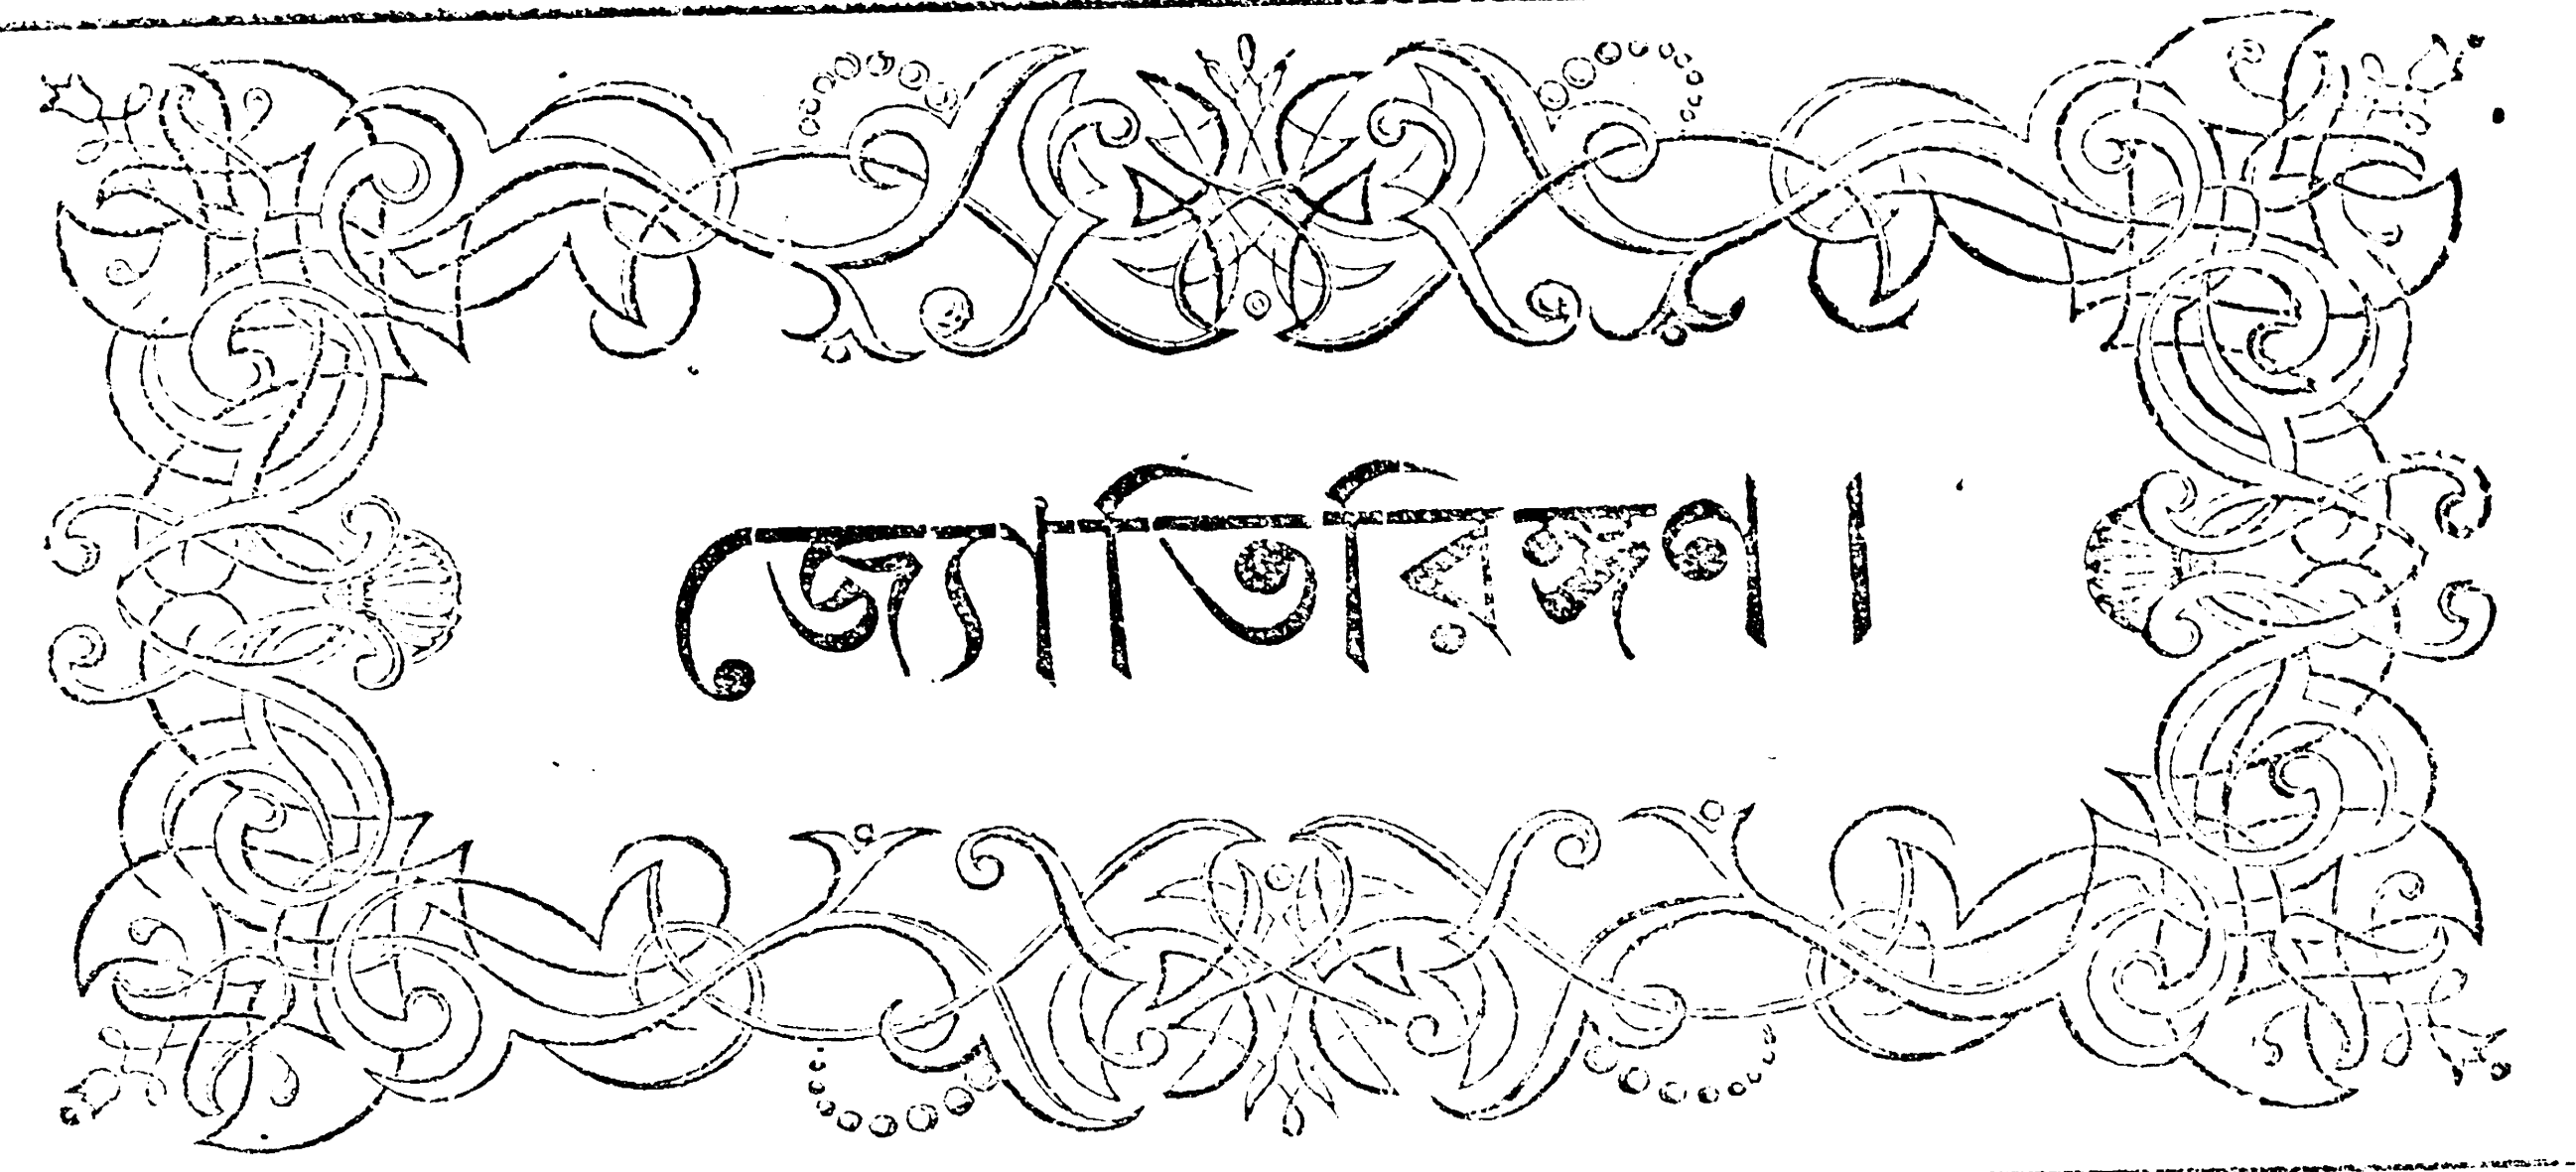 জ্যোতিরিঙ্গণ ।